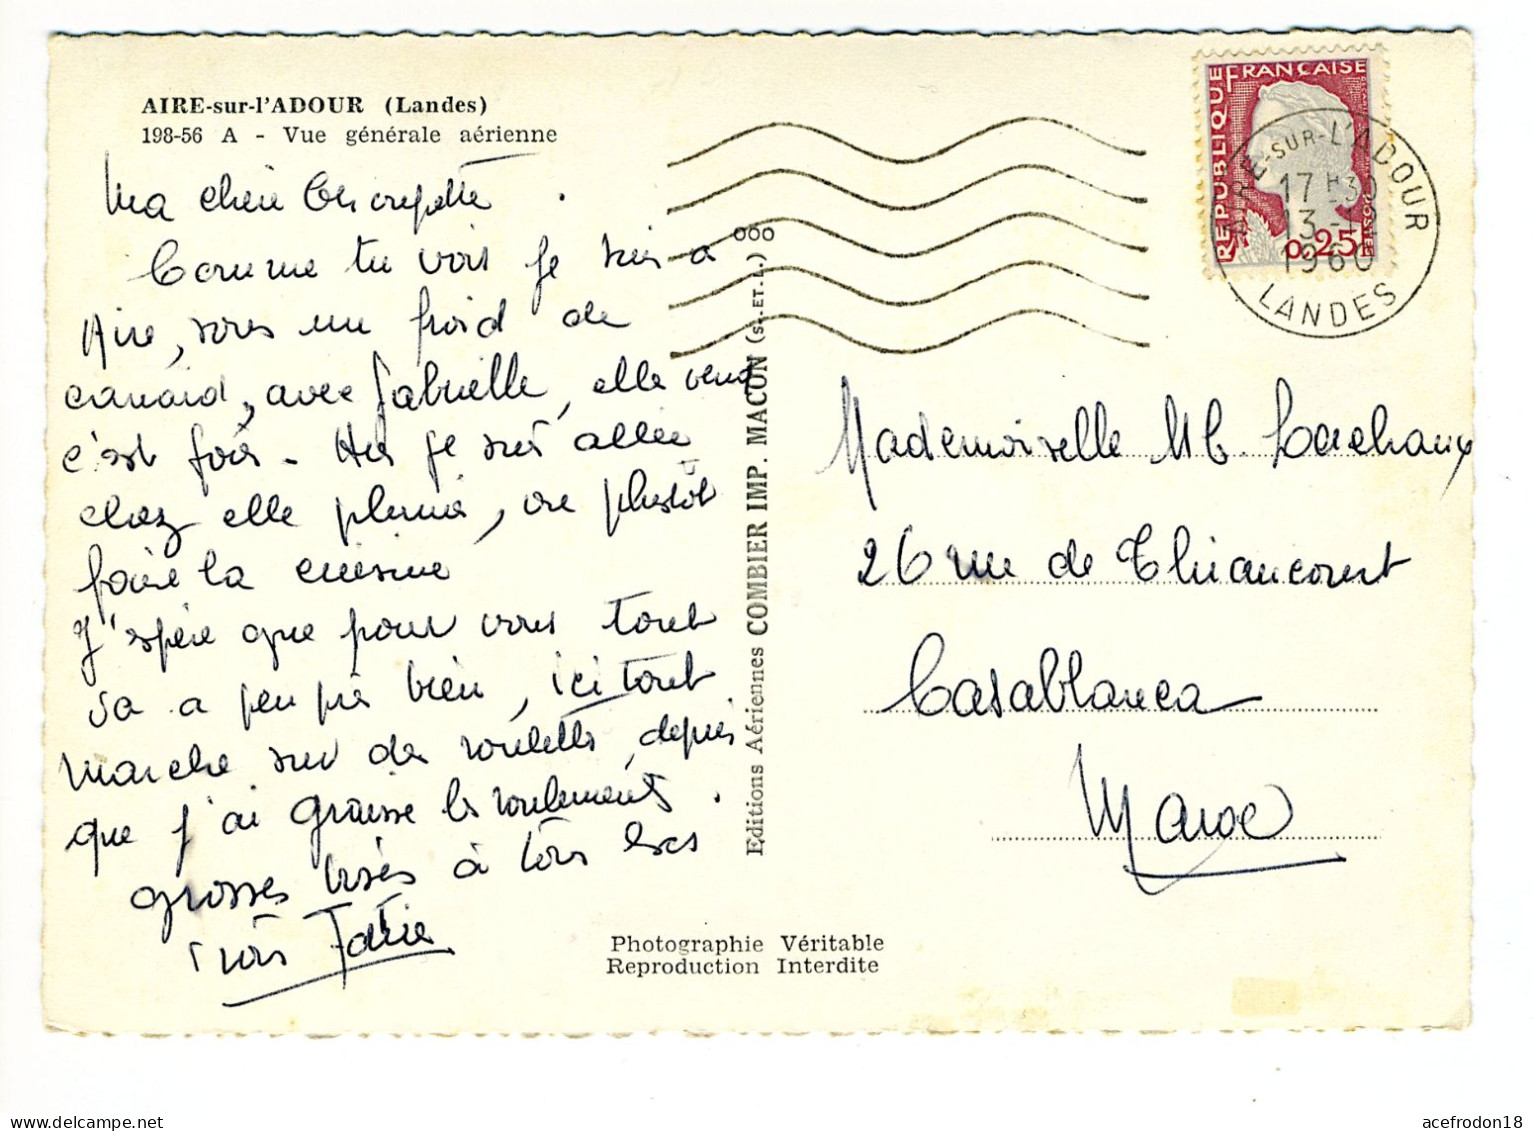 AIRE-sur-l'ADOUR (Landes)
198-56 A - Vue générale aérienne
Ma chère
Comme tu vois je suis a
Aire, sous un froid de
canard, avec Gabrielle, elle vend
c'est foies - Hier je suis allée
chez elle plumer, ou plutôt
faire la cuisine
J'espère que pour vous tout
va a peu près bien, ici tout
marche sur des roulettes, depuis
que j'ai graissé les roulements.
grosses bises à tous
Editions Aériennes COMBIER IMP. MACON (S.-ET-L.)
ooo
Photographie Véritable
Reproduction Interdite
REPUBLIQUE FRANÇAISE
POSTES
0,25F
AIRE-SUR-L'ADOUR
17 H 30
13 -12
1960
LANDES
Mademoiselle
26 rue de Thiancourt
Casablanca
Maroc
acefrodon18